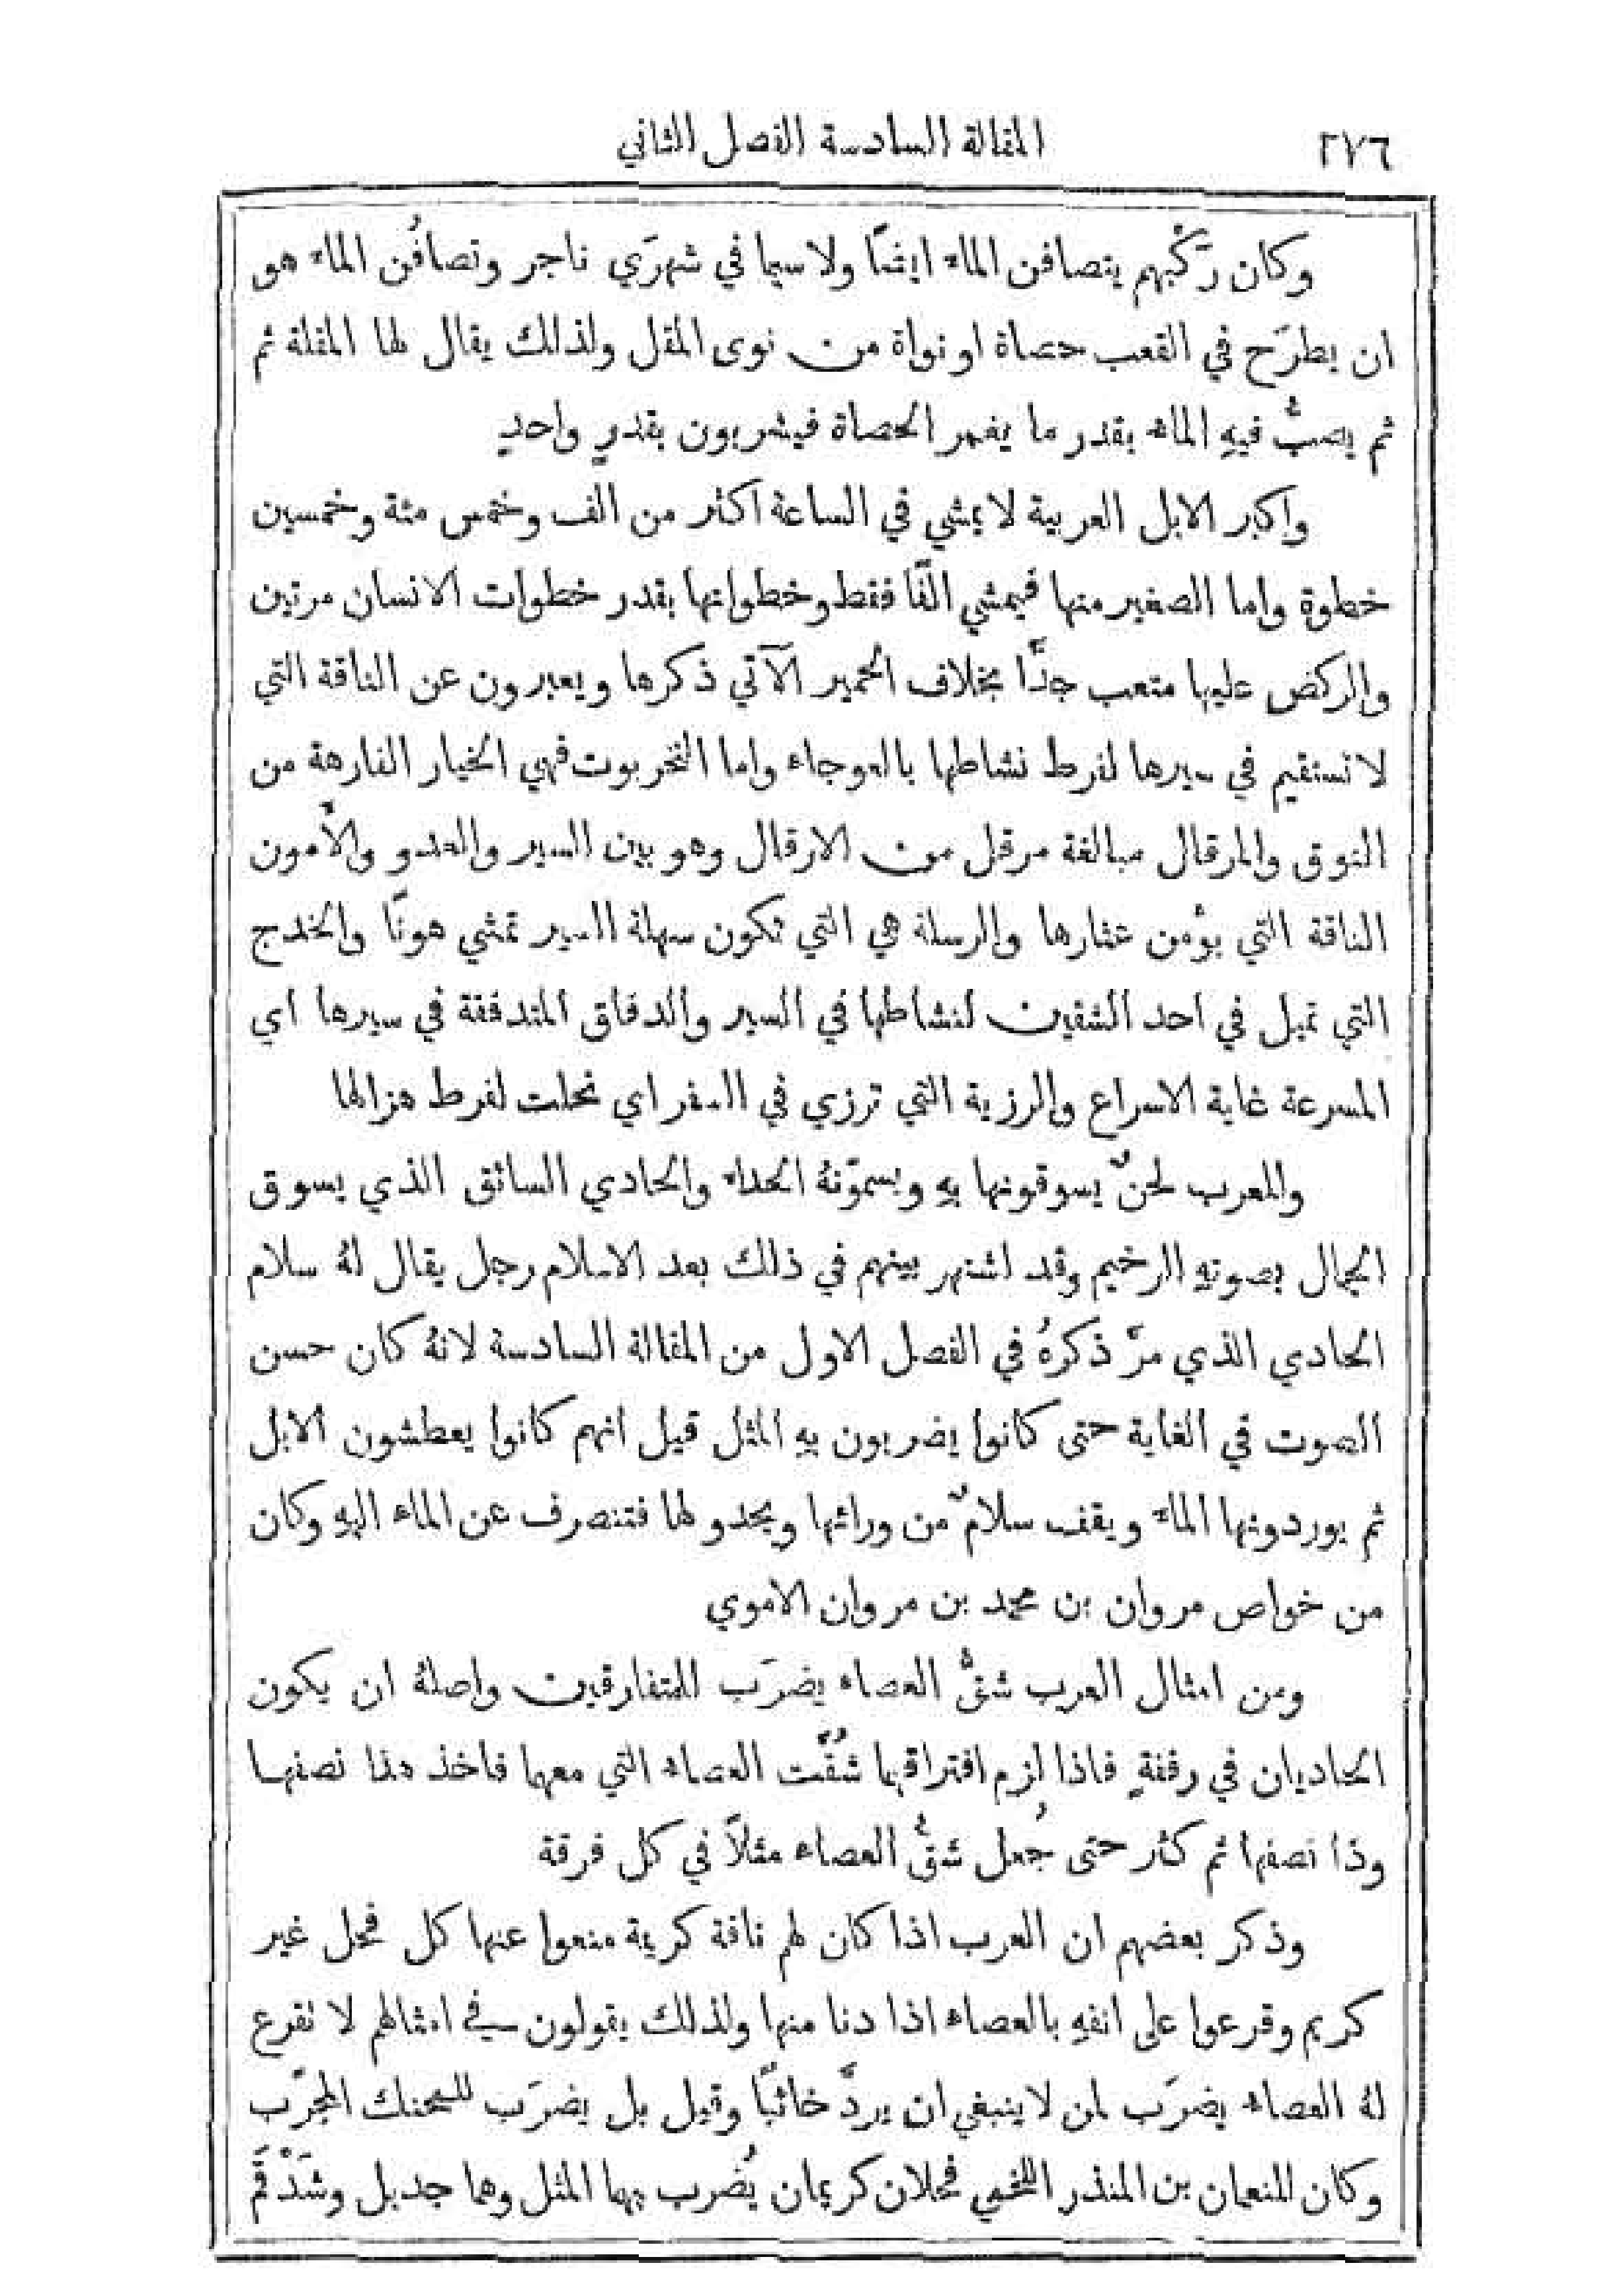 ٢٧٦
المقالة السادسة الفصل الثاني
وكان رَكْبهم يتصافن الماء ايضًا ولا سيما في شهرَي ناجر وتصافُن الماء هو
ان يطرَح في القعب حصاة او نواة من نوى المقل ولذلك يقال لها المقلة ثم
ثم يصبُّ فيهِ الماء بقدر ما يغمر الحصاة فيشربون بقدرٍ واحدٍ
واكبر الابل العربية لا يمشي في الساعة اكثر من الف وخمس مئة وخمسين
خطوة واما الصغير منها فيمشي الفًا فقط وخطواتها بقدر خطوات الانسان مرتين
والركض عليها متعب جدًّا بخلاف الحمير الآتي ذكرها ويعبرون عن الناقة التي
لا تستقيم في سيرها لفرط نشاطها بالعوجاء واما التخربوت فهي الخيار الفارهة من
النوق والمرقال مبالغة مرقل من الارقال وهو بين السير والعدو والأمون
الناقة التي يؤمن عثارها والرسلة هي التي تكون سهلة السير تمشي هونًا والخدج
التي تميل في احد الشقين لنشاطها في السير والدفاق المتدفقة في سيرها اي
المسرعة غاية الاسراع والرزية التي ترزي في السفر اي نحلت لفرط هزالها
وللعرب لحنٌ يسوقونها بهِ ويسمّونهُ الحداء والحادي السائق الذي يسوق
الجمال بصوتهِ الرخيم وقد اشتهر بينهم في ذلك بعد الاسلام رجل يقال لهُ سلام
الحادي الذي مرَّ ذكرهُ في الفصل الاول من المقالة السادسة لانهُ كان حسن
الصوت في الغاية حتى كانوا يضربون بهِ المثل قيل انهم كانوا يعطشون الابل
ثم يوردونها الماء ويقف سلامٌ من ورائها ويحدو لها فتنصرف عن الماء اليهِ وكان
من خواص مروان بن محمد بن مروان الاموي
ومن امثال العرب شقُّ العصاء يضرَب للمتفارقين واصلهُ ان يكون
الحاديان في رفقةٍ فاذا لزم افتراقهما شُقَّت العصاء التي معهما فاخذ هذا نصفها
وذا نصفها ثم كثر حتى جُعل شقُّ العصاء مثلاً في كل فرقة
وذكر بعضهم ان العرب اذا كان لهم ناقة كريمة منعوا عنها كل فحل غير
كريم وقرعوا على انفهِ بالعصاء اذا دنا منها ولذلك يقولون في امثالهم لا تقرع
لهُ العصاء يضرَب لمن لا ينبغي ان يردَّ خائبًا وقيل بل يضرَب للمحنك المجرّب
وكان للنعمان بن المنذر اللخمي فحلان كريمان يُضرب بهما المثل وهما جديل وشَدْقَم